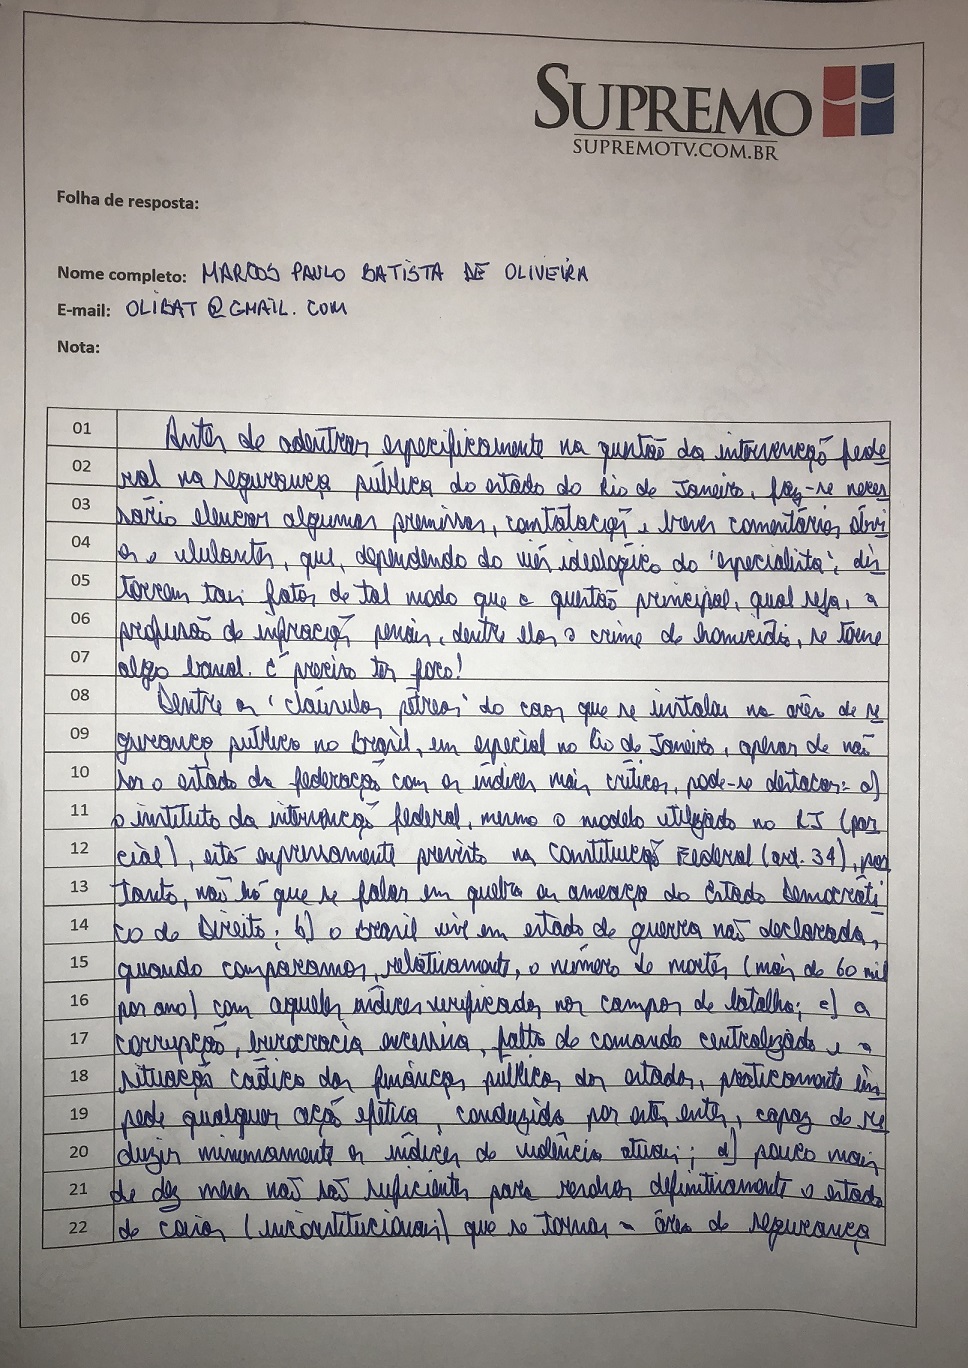 SUPREMO
SUPREMOTV.COM.BR
Folha de resposta:
Nome completo: MARCOS PAULO BATISTA DE OLIVEIRA
E-mail: OLIBAT@GMAIL.COM
Nota:
01 Antes de adentrar especificamente na questão da intervenção fede
02 ral na segurança pública do estado do Rio de Janeiro, faz-se neces
03 sário elencar algumas premissas, constatações e breves comentários óbvi
04 os e ululantes, que, dependendo do viés ideológico do 'especialista', dis
05 torcem tais fatos de tal modo que a questão principal, qual seja, a
06 profusão de infrações penais, dentre elas o crime de homicídio, se torne
07 algo banal. É preciso ter foco!
08 Dentre as 'cláusulas pétreas' do caos que se instalou na área de se
09 gurança pública no Brasil, em especial no Rio de Janeiro, apesar de não
10 ser o estado da federação com os índices mais críticos, pode-se destacar: a)
11 o instituto da intervenção federal, mesmo o modelo utilizado no RJ (par
12 cial), está expressamente previsto na Constituição Federal (art. 34), por
13 tanto, não há que se falar em quebra ou ameaça do Estado Democráti
14 co de Direito; b) o Brasil vive em estado de guerra não declarada,
15 quando comparamos, relativamente, o número de mortes (mais de 60 mil
16 por ano) com aqueles índices verificados nos campos de batalha; c) a
17 corrupção, burocracia excessiva, falta de comando centralizado e a
18 situação caótica das finanças públicas dos estados, praticamente im
19 pede qualquer ação efetiva, conduzida por estes entes, capaz de re
20 duzir minimamente os índices de violência atuais; d) pouco mais
21 de dez meses não são suficientes para resolver definitivamente o estado
22 de coisas (inconstitucionais) que se tornou a área de segurança